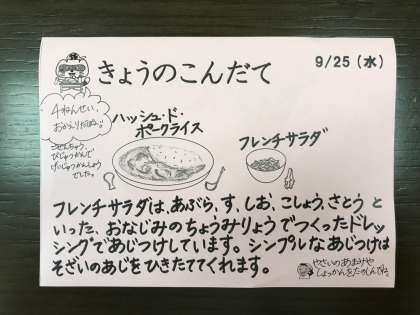 きょうのこんだて
9/25（水）
4ねんせい、
おかえりだぬ♪
ごぜんちゅう、
びじゅつかんで
げいじゅつかんしょう
でした。
ハッシュ・ド・
ポークライス
フレンチサラダ
フレンチサラダは、あぶら、す、しお、こしょう、さとう と
いった、おなじみのちょうみりょうでつくったドレッ
シングであじつけしています。シンプルなあじつけは
そざいのあじをひきたててくれます。
やさいのあまみや
しょっかんをたのしんでね